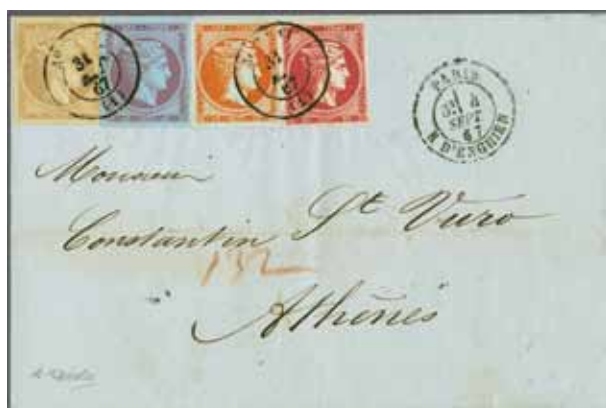 31
67
(1)
31
67
(1)
PARIS
SEPT
67
R D'ENGHIEN
Monsieur
Constantin St Vuro
132
Athènes